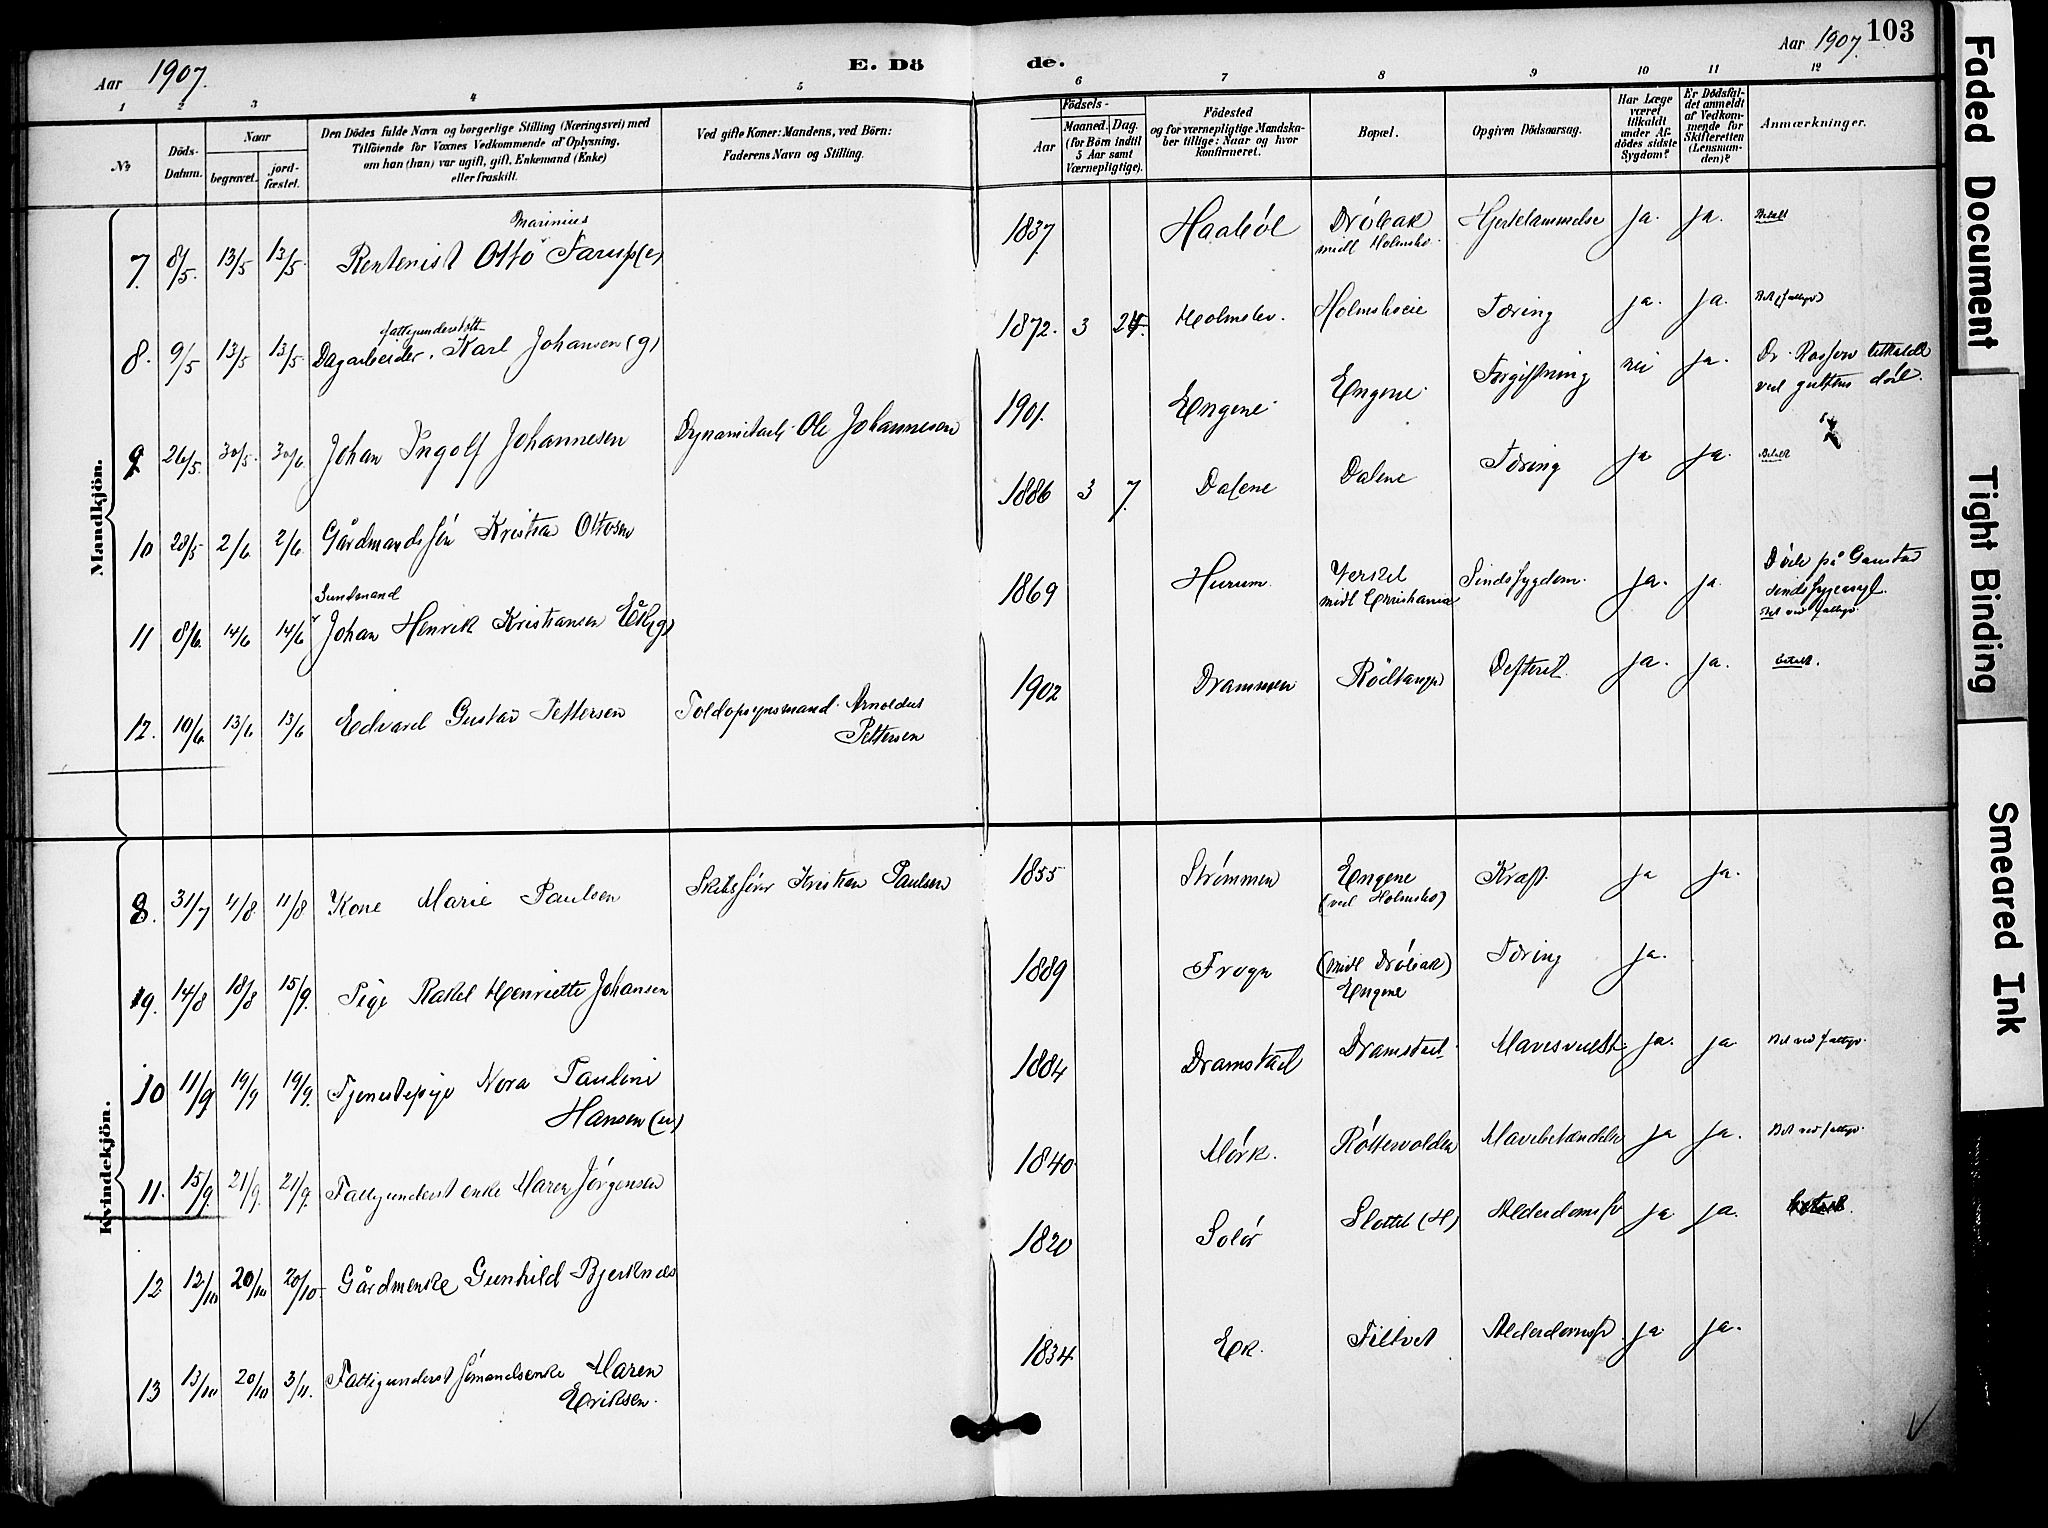 Aar 1907.
E. Döde.
Aar 1907. 103
1 2 3 4 5 6 7 8 9 10 11 12
No
Döds-Datum.
Naar
begravet. jord-fæstet.
Den Dödes fulde Navn og borgerlige Stilling (Næringsvei) med
Tilföiende for Voxnes Vedkommende af Oplysning,
om han (hun) var ugift, gift, Enkemand (Enke)
eller fraskilt.
Ved gifte Koner: Mandens, ved Börn:
Faderens Navn og Stilling.
Födsels-
Aar
Maaned. Dag.
(for Börn indtil
5 Aar samt
Værnepligtige).
Födested
og for værnepligtige Mandska-
ber tillige: Naar og hvor
konfirmeret.
Bopæl.
Opgiven Dödsaarsag.
Har Læge
været
tilkaldt
under Af-
dödes sidste
Sygdom?
Er Dödsfal-
det anmeldt
af Vedkom-
mende for
Skifteretten
(Lensman-
den)?
Anmærkninger.
Mandkjön.
7. 8/5. 13/5 13/5. Rentenist Otto Marinius Farup(e) 1837 Haaböl Dröbak midl Holmsbo. Hjertelammelse ja. ja. Betalt
8. 9/5 13/5 13/5. fattigunderstött Dagarbeider. Karl Johansen (g) 1872. 3 24. Holmsbo. Holmsboeie Tæring ja. ja. Bet (fattigv)
9 26/5. 30/5. 30/6. Johan Ingolf Johannesen Dynamitarb. Ole Johannesen 1901. Engene Engene Forgiftning nei ja. Dr. tilkaldt
ved guttens död.
10 28/5 2/6 2/6. Gårdmandssön Kristian Ottosen 1886 3 7. Dalene Dalene Tæring ja ja. Betalt
11 8/6. 14/6 14/6 Johan Henrik Kristiansen Ek(g) 1869 Hurum. midl Christiania Sindssygdom. ja. ja. Döde på Gaustad
sindssygeasyl.
Bet ved fattigv.
12. 10/6. 13/6 13/6 Edvard Gustav Pettersen Toldopsynsmand Arnoldus
Pettersen 1902 Drammen Rödtangen Defterit ja. ja. betalt.
Kvindekjön.
8. 31/7 4/8. 11/8 Kone Marie Paulsen Skibsförer Kristian Paulsen 1855 Strömmen Engene
(ved Holmsbo) Kræft. ja ja.
9. 14/8 18/8 15/9. Pige Rakel Henriette Johansen 1889 Frogn (midl Dröbak)
Engene Tæring ja.
10 11/9 19/9 19/9. Tjenestepige Nora Pauline
Hansen (u) 1884 Dramstad Dramstad. Mavesvulst ja. ja Bet ved fattigv.
11. 15/9. 21/9. 21/9. Fattigunderst enke Maren Jörgensen 1840 Mörk. Röttesvolden Mavebetændelse ja ja. Bet ved fattigv.
12 12/10 20/10 20/10. Gårdmenke Gunhild Bjerknæs 1820 Solör Slottet (H) Alderdomssv ja ja. betalt.
13 13/10 20/10 3/11. Fattigunderst sömandsenke Maren
Eriksen. 1834 Ek. Filtvet Alderdomssv ja ja.
Faded Document
Tight Binding
Smeared Ink